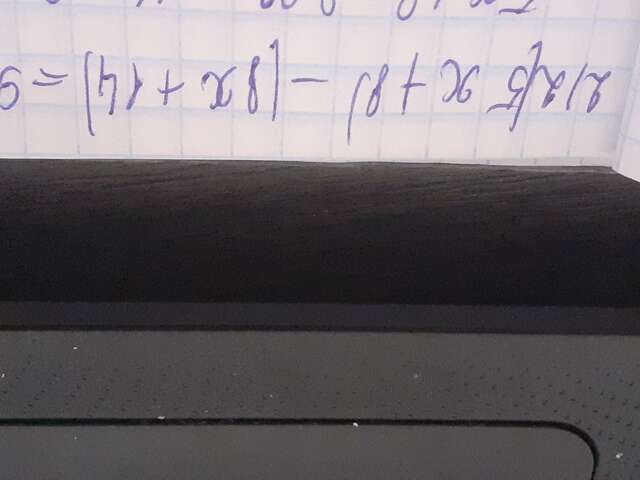 2) 2(5x + 8) - (8x + 14) = 6